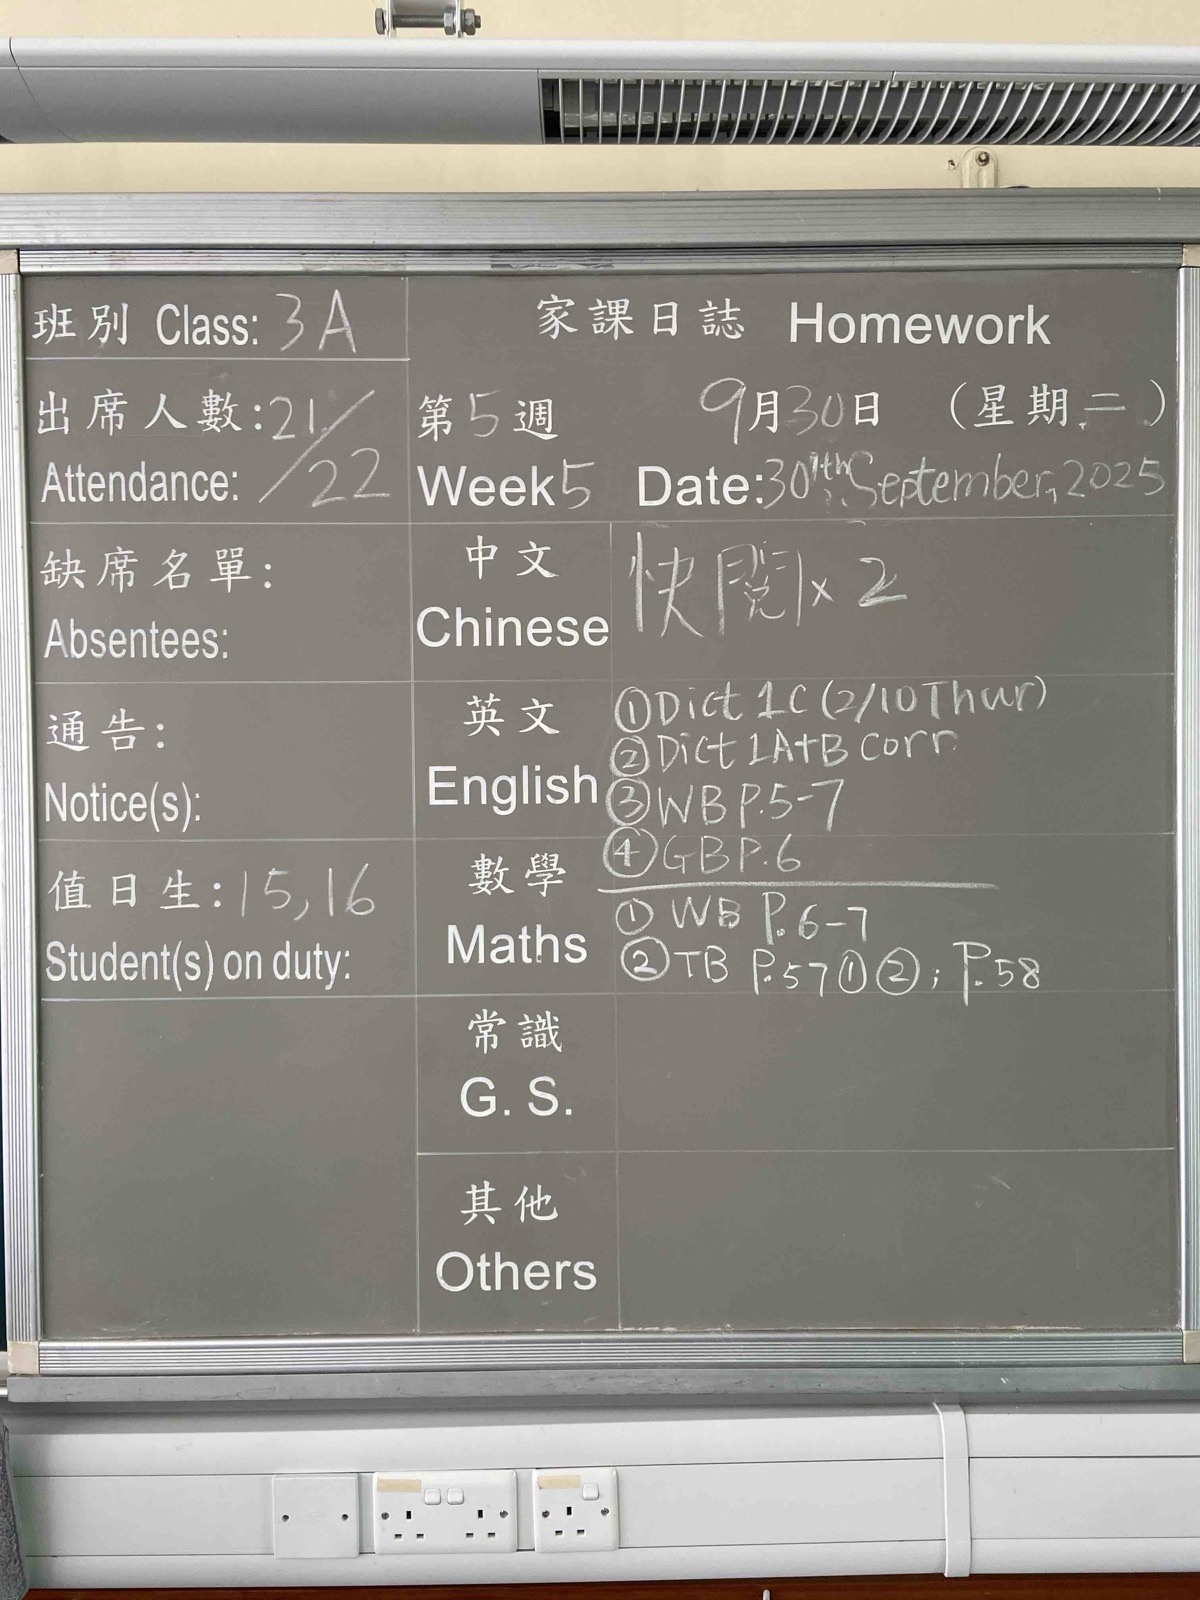 班別 Class: 3A
家課日誌 Homework
出席人數: 21/22
Attendance:
第5週 9月30日 (星期二)
Week 5 Date: 30th September, 2025
缺席名單:
Absentees:
中文
Chinese
快閱 x 2
通告:
Notice(s):
英文
English
① Dict 1C (2/10 Thur)
② Dict 1A+B corr.
③ WB P.5-7
④ GB P.6
值日生: 15, 16
Student(s) on duty:
數學
Maths
① WB P.6-7
② TB P.57 ① ② ; P.58
常識
G. S.
其他
Others